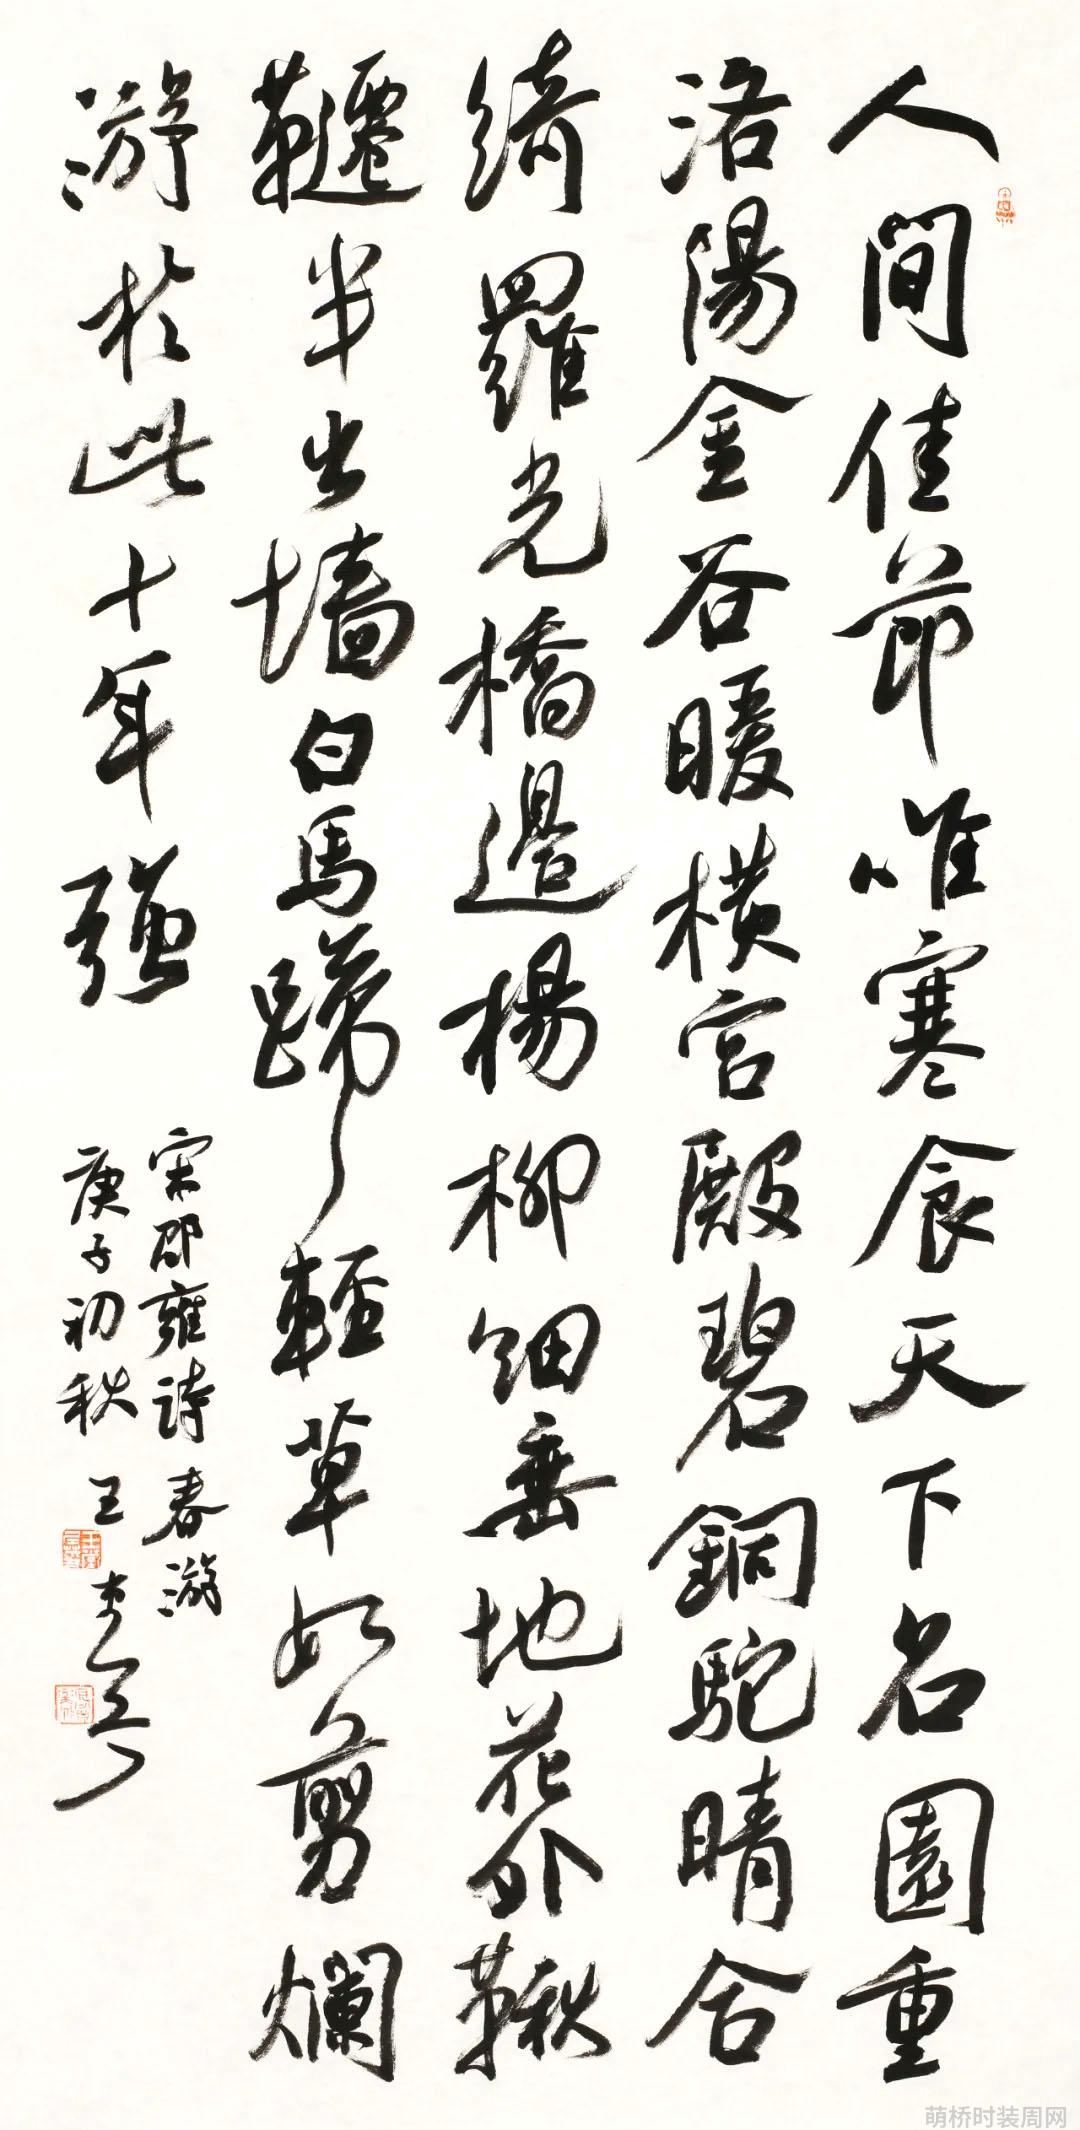 人間佳節唯寒食天下名園重
洛陽金谷暖橫宮殿碧銅駝晴合
綺羅光橋邊楊柳細垂地花外鞦
韆半出墻白馬蹄輕草如剪爛
游於此十年強
宋邵雍詩春游
庚子初秋王
萌桥时装周网